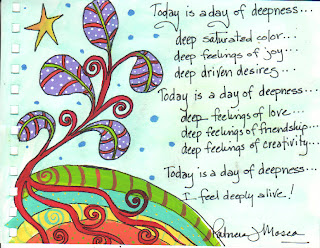 Today is a day of deepness...
deep saturated color...
deep feelings of joy...
deep driven desires...
Today is a day of deepness...
deep feelings of love...
deep feelings of friendship...
deep feelings of creativity...
Today is a day of deepness...
I feel deeply alive!
Patricia J Mosca